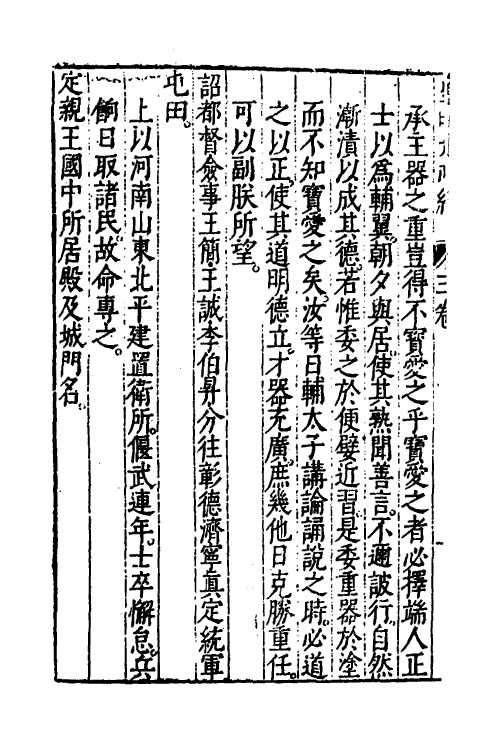 三卷
承主器之重豈得不寶愛之乎寶愛之者必擇端人正
士以爲輔翼朝夕與居使其熟聞善言不邇詖行自然
漸漬以成其德若惟委之於便嬖近習是委重器於塗
而不知寶愛之矣汝等日輔太子講論誦說之時必道
之以正使其道明德立才器充廣庶幾他日克勝重任
可以副朕所望
詔都督僉事王簡王誠李伯昇分往彰德濟寧真定統軍
屯田
上以河南山東北平建置衛所偃武連年士卒懈怠兵
餉日取諸民故命專之
定親王國中所居殿及城門名